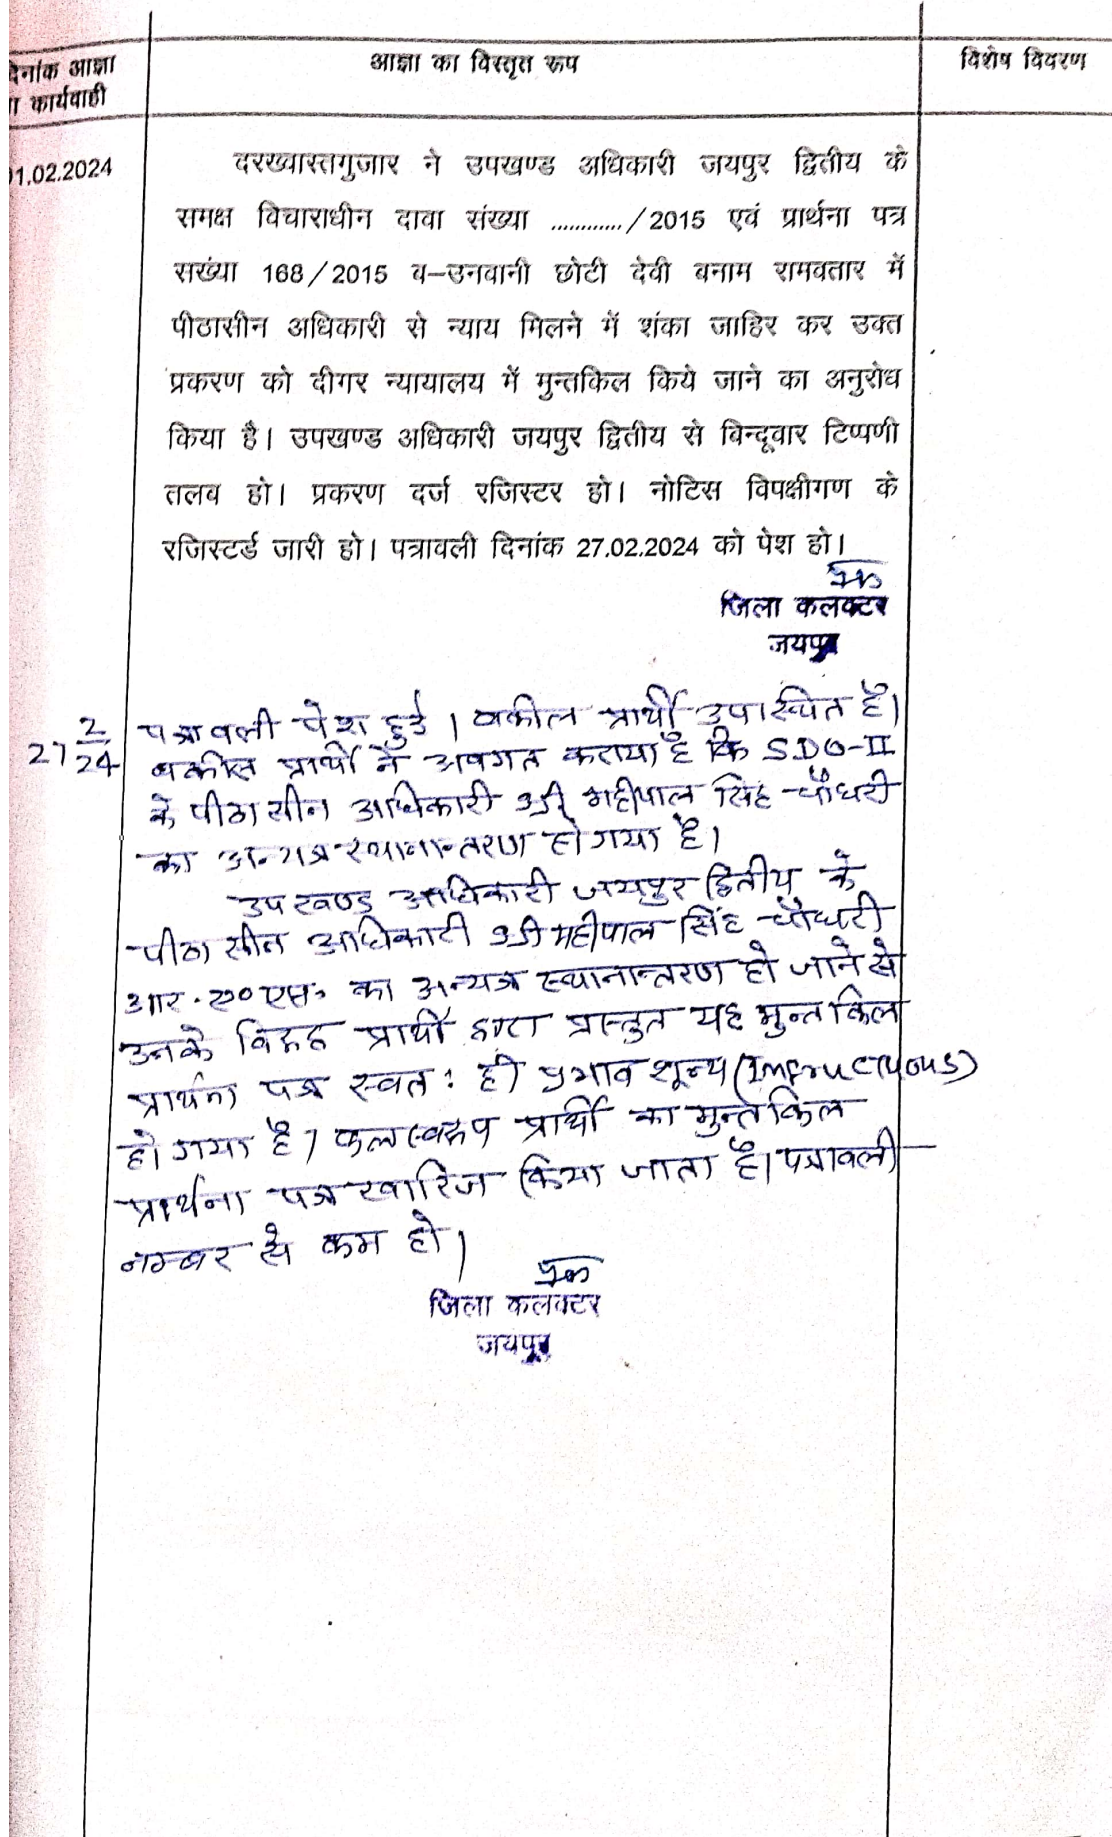 देनांक आज्ञा
ा कार्यवाही
आज्ञा का विस्तृत रूप
विशेष विवरण
01.02.2024
दरख्वास्तगुजार ने उपखण्ड अधिकारी जयपुर द्वितीय के
समक्ष विचाराधीन दावा संख्या ............/2015 एवं प्रार्थना पत्र
सख्ंया 168/2015 ब–उनवानी छोटी देवी बनाम रामवतार में
पीठासीन अधिकारी से न्याय मिलने में शंका जाहिर कर उक्त
प्रकरण को दीगर न्यायालय में मुन्तकिल किये जाने का अनुरोध
किया है। उपखण्ड अधिकारी जयपुर द्वितीय से बिन्दूवार टिप्पणी
तलब हो। प्रकरण दर्ज रजिस्टर हो। नोटिस विपक्षीगण के
रजिस्टर्ड जारी हो। पत्रावली दिनांक 27.02.2024 को पेश हो।
जिला कलक्टर
जयपुर
27 2/24
पत्रावली पेश हुई। वकील प्रार्थी उपास्थित है।
वकील प्रार्थी ने अवगत कराया है कि SDO-II
के पीठासीन अधिकारी श्री महीपाल सिंह चौधरी
का अन्यत्र स्थानान्तरण हो गया है।
उपखण्ड अधिकारी जयपुर द्वितीय के
पीठासीन अधिकारी श्री महीपाल सिंह चौधरी
आर.ए०एस० का अन्यत्र स्थानान्तरण हो जाने से
उनके विरुद्ध प्रार्थी द्वारा प्रस्तुत यह मुन्तकिल
प्रार्थना पत्र स्वतः ही प्रभाव शून्य (Infructuous)
हो गया है। फलस्वरूप प्रार्थी का मुन्तकिल
प्रार्थना पत्र खारिज किया जाता है। पत्रावली
नम्बर से कम हो।
जिला कलक्टर
जयपुर